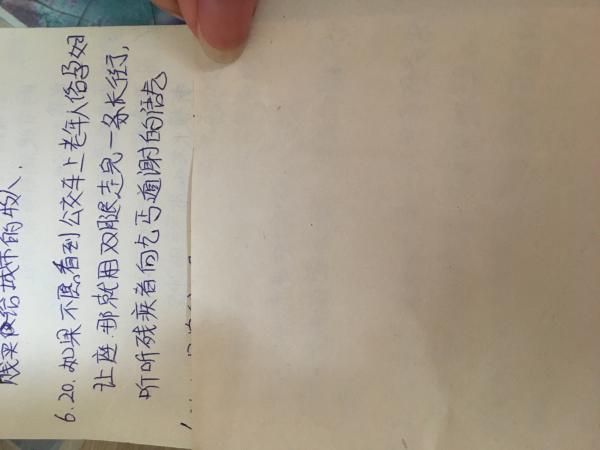 贱卖给城市的物人,
6.20.如果不愿看到公交车上老年人给孕妇
让座.那就用双腿走完一条长街,
听听残疾者向乞丐道谢的活